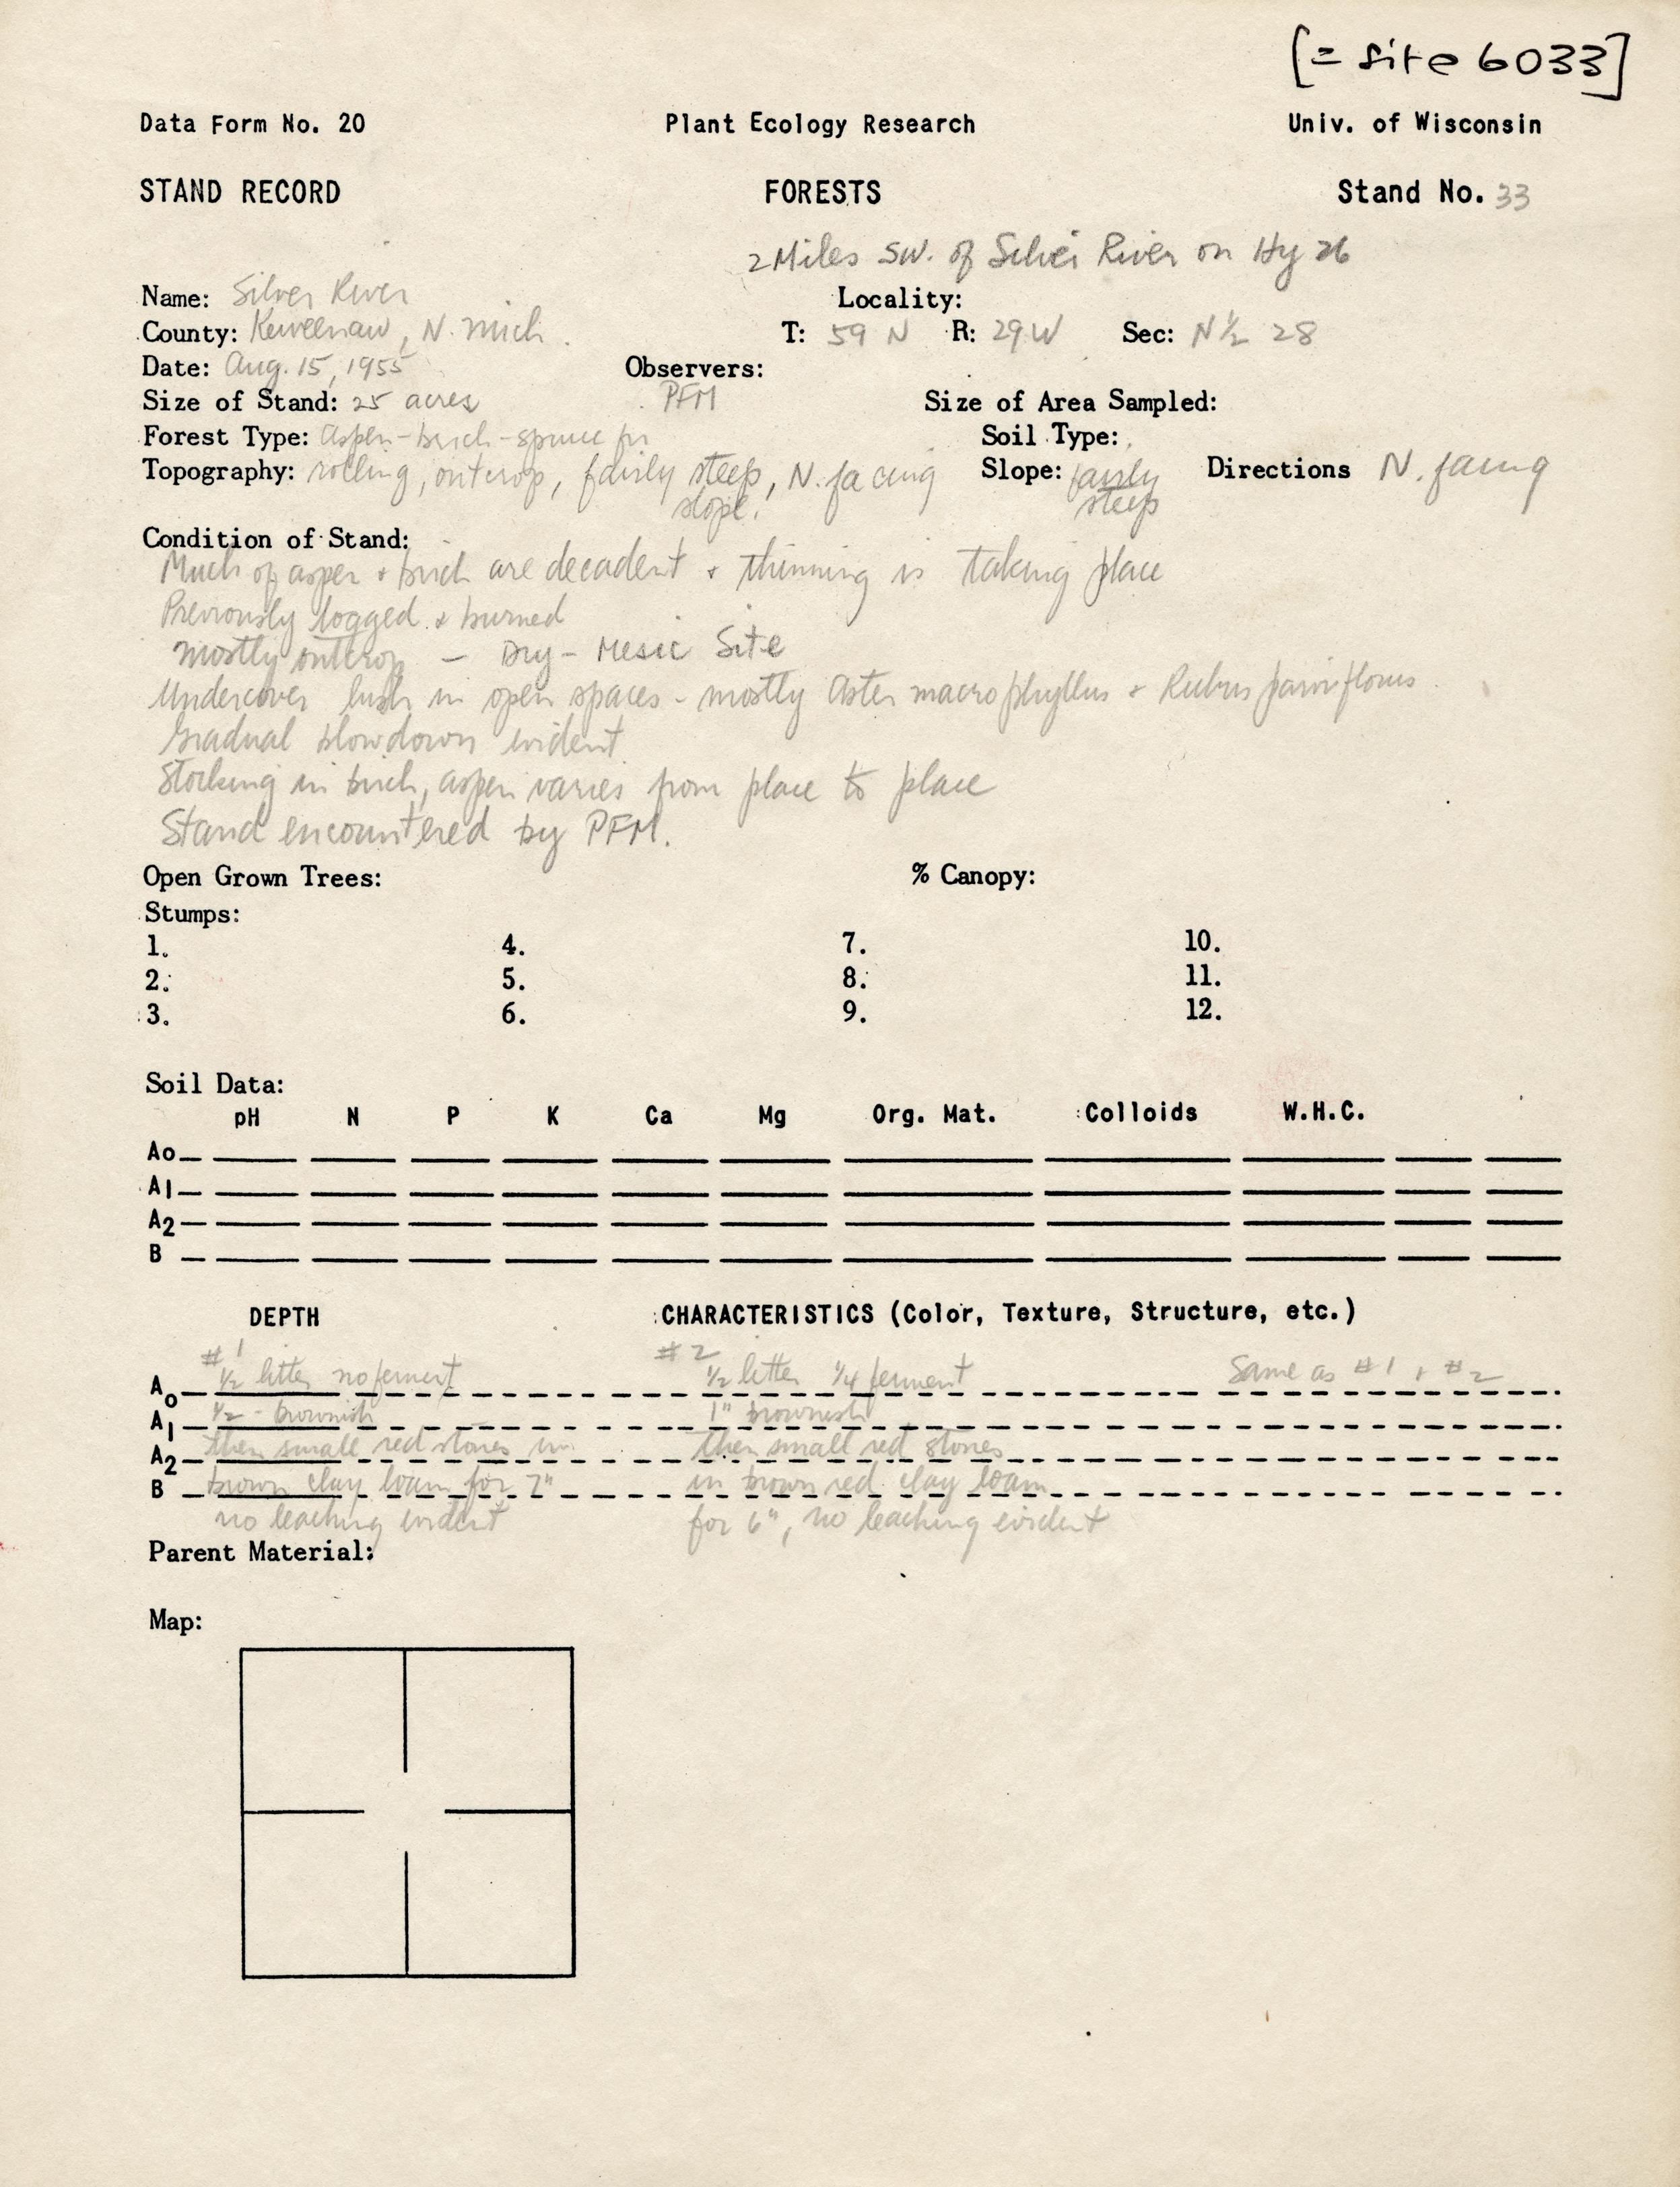 [= site 6033]
Data Form No. 20 Plant Ecology Research Univ. of Wisconsin
STAND RECORD FORESTS Stand No. 33
2 Miles SW. of Silver River on Hy 26
Name: Silver River Locality:
County: Keweenaw, N. Mich. T: 59 N R: 29 W Sec: N 1/2 28
Date: Aug. 15, 1955 Observers:
Size of Stand: 25 acres PFM Size of Area Sampled:
Forest Type: Aspen-birch-spruce fir Soil Type:
Topography: rolling, outcrop, fairly steep, N. facing Slope: fairly Directions N. facing
slope. steep
Condition of Stand:
Much of aspen + birch are decadent + thinning is taking place
Previously logged + burned
mostly outcrop - Dry-Mesic Site
Undercover lush in open spaces - mostly Aster macrophyllus + Rubus parviflorus.
Gradual blowdown evident
Stocking in birch, aspen varies from place to place
Stand encountered by PFM.
Open Grown Trees: % Canopy:
Stumps:
1. 4. 7. 10.
2. 5. 8. 11.
3. 6. 9. 12.
Soil Data:
pH N P K Ca Mg Org. Mat. Colloids W.H.C.
Ao
A1
A2
B
DEPTH CHARACTERISTICS (Color, Texture, Structure, etc.)
#1 #2
A0 1/2 litter no ferment 1/2 litter 1/4 ferment Same as #1 + #2
A1 1/2 - brownish 1" brownish
A2 then small red stones in then small red stones
B brown clay loam for 7" in brown red clay loam
no leaching evident for 6", no leaching evident
Parent Material:
Map: